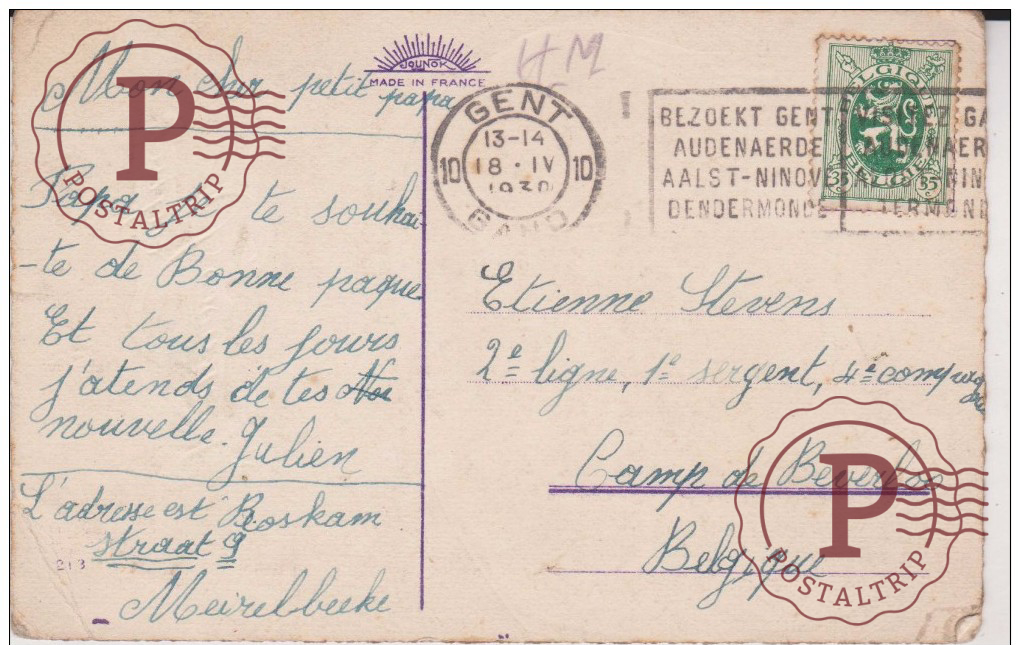 Mon cher petit papa
Papa je te souhai-
-te de Bonne paque
Et tous les jours
j'atends de tes
nouvelle. Julien
L'adresse est Roskam
straat 9
Meirelbeeke
213
JOUNOK
MADE IN FRANCE
HM
GENT
13-14
18·IV
1930
10 10
GAND
BEZOEKT GENT VISITEZ GA
AUDENAERDE AUDENAER
AALST-NINOV NIN
DENDERMONDE TERMOND
BELGIQUE
BELGIE
35 35
Etienne Stevens
2e ligne, 1e sergent, 4e comp
Camp de Beverloo
Belgique
P
POSTALTRIP
P
POSTALTRIP